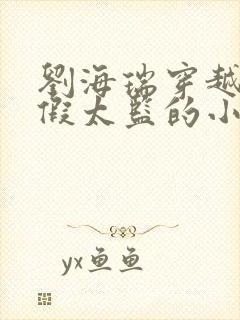 劉海瑞穿越
假太監的小
yx鱼鱼